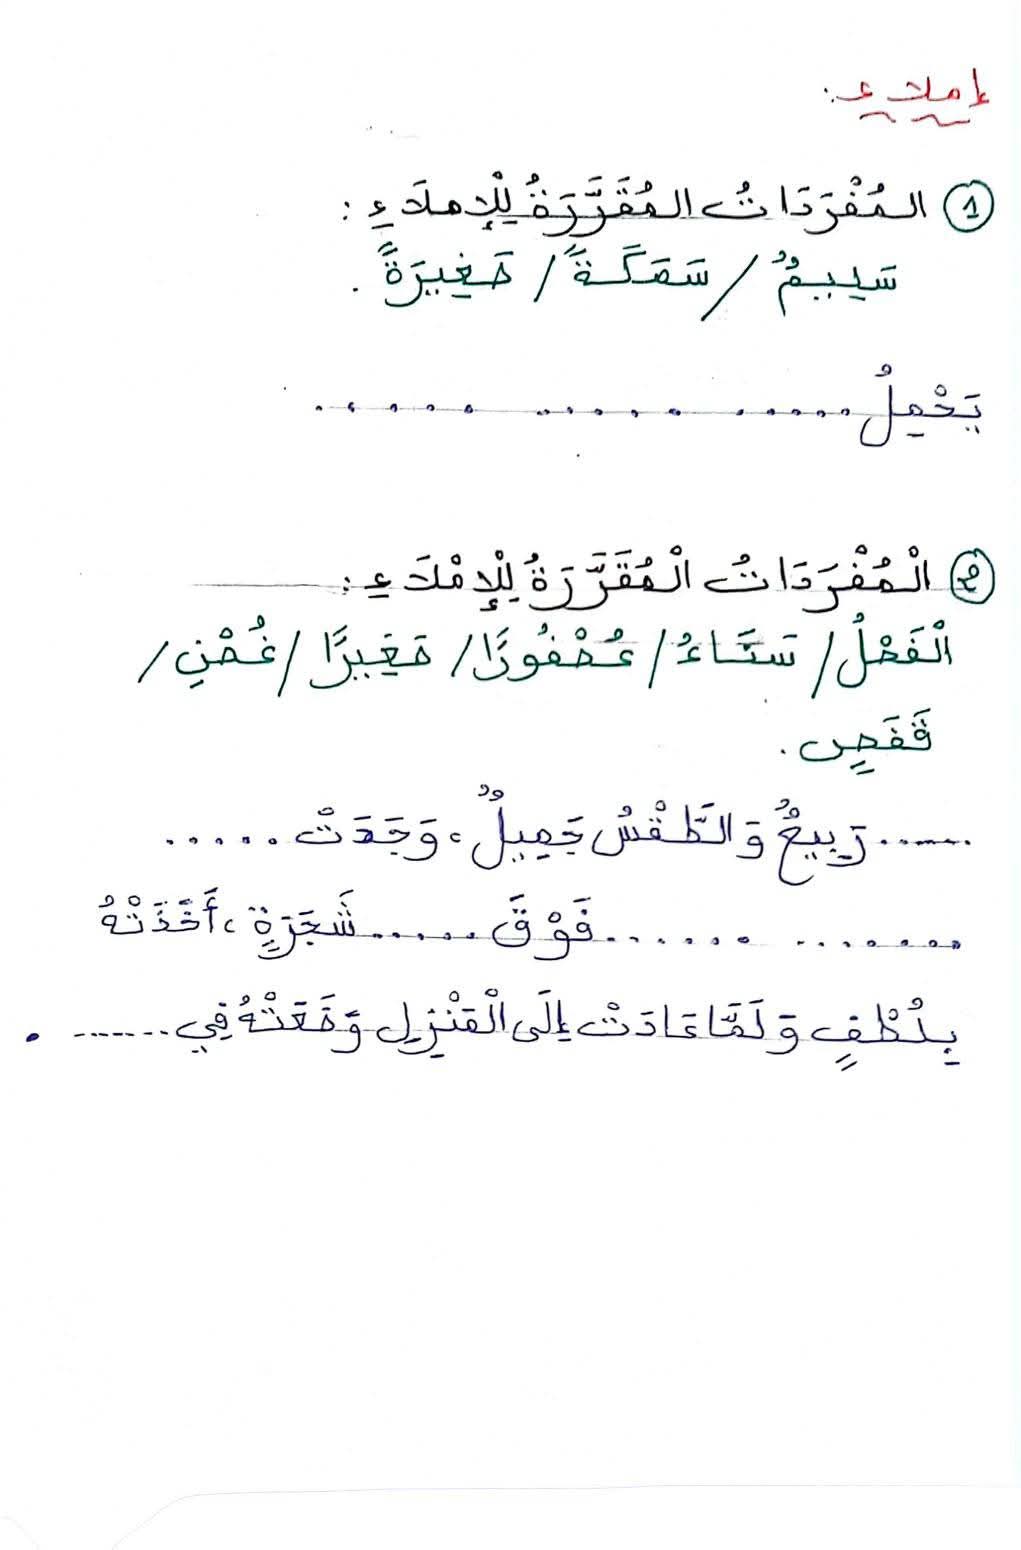 إملاء:
1 المُفْرَدَاتُ المُقَرَّرَةُ لِلْإِملَاءِ :
سَلِيمٌ / سَمَكَةً / صَغِيرَةً .
يَحْمِلُ ..... ..... ..... .....
2 الْمُفْرَدَاتُ الْمُقَرَّرَةُ لِلْإِمْلَاءِ :
الْفَصْلُ / سَنَاءُ / عُصْفُورًا / صَغِيرًا / غُصْنِ /
قَفَصٍ .
...... رَبِيعٌ وَالطَّقْسُ جَمِيلٌ، وَجَدَتْ ......
....... ....... فَوْقَ ...... شَجَرَةٍ، أَخَذَتْهُ
بِلُطْفٍ وَلَمَّا عَادَتْ إِلَى الْمَنْزِلِ وَضَعَتْهُ فِي ....... .